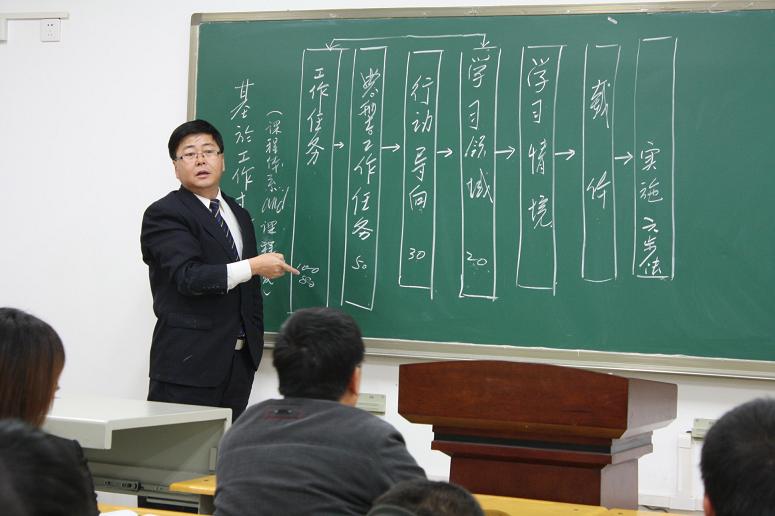 基於工作
(课程体系 and 课程
工作任务
100
典型工作任务
50
行动导向
30
学习领域
20
学习情境
载体
实施六步法